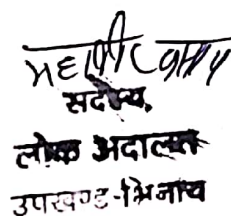 सदस्य,
लोक अदालत
उपखण्ड-भिनाय